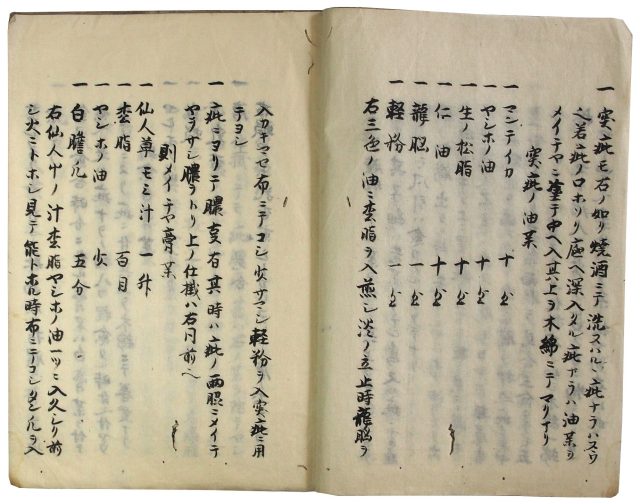 一 突疵モ右ノ如ク焼酒ニテ洗スハルヽ疵ナラハスワ
之若疵ノ口ホソク底ヘ深入タル疵ナラハ油薬ヲ
メイテヤニ塗テ中ヘ入其上ヲ木綿ニテマクナリ
突疵ノ油薬
一 マンテイカ 十匁
一 ヤシホノ油 十匁
一 生ノ松脂 十匁
一 仁油 十匁
一 龍脳 一匁
一 軽粉 一匁
右三色ノ油ニ松脂ヲ入煎シ淡ノ立止時龍脳ヲ
入カキマセ布ニテコシ少サマシ軽粉ヲ入突疵ニ用
テヨシ
一 疵ニヨリテ膿支有其時ハ疵ノ両脇ニメイテ
ヤヲサシ膿ヲトリ上ノ仕掛ハ右同前ヘ
則メイテヤ膏薬
一 仙人草モミ汁 一升
一 松脂 百目
一 ヤシホノ油 少
一 白蠟 五分
右仙人草ノ汁松脂ヤシホノ油一ツニ入久シク前
シ火ニトホシ見テ能トホル時布ニテコシ